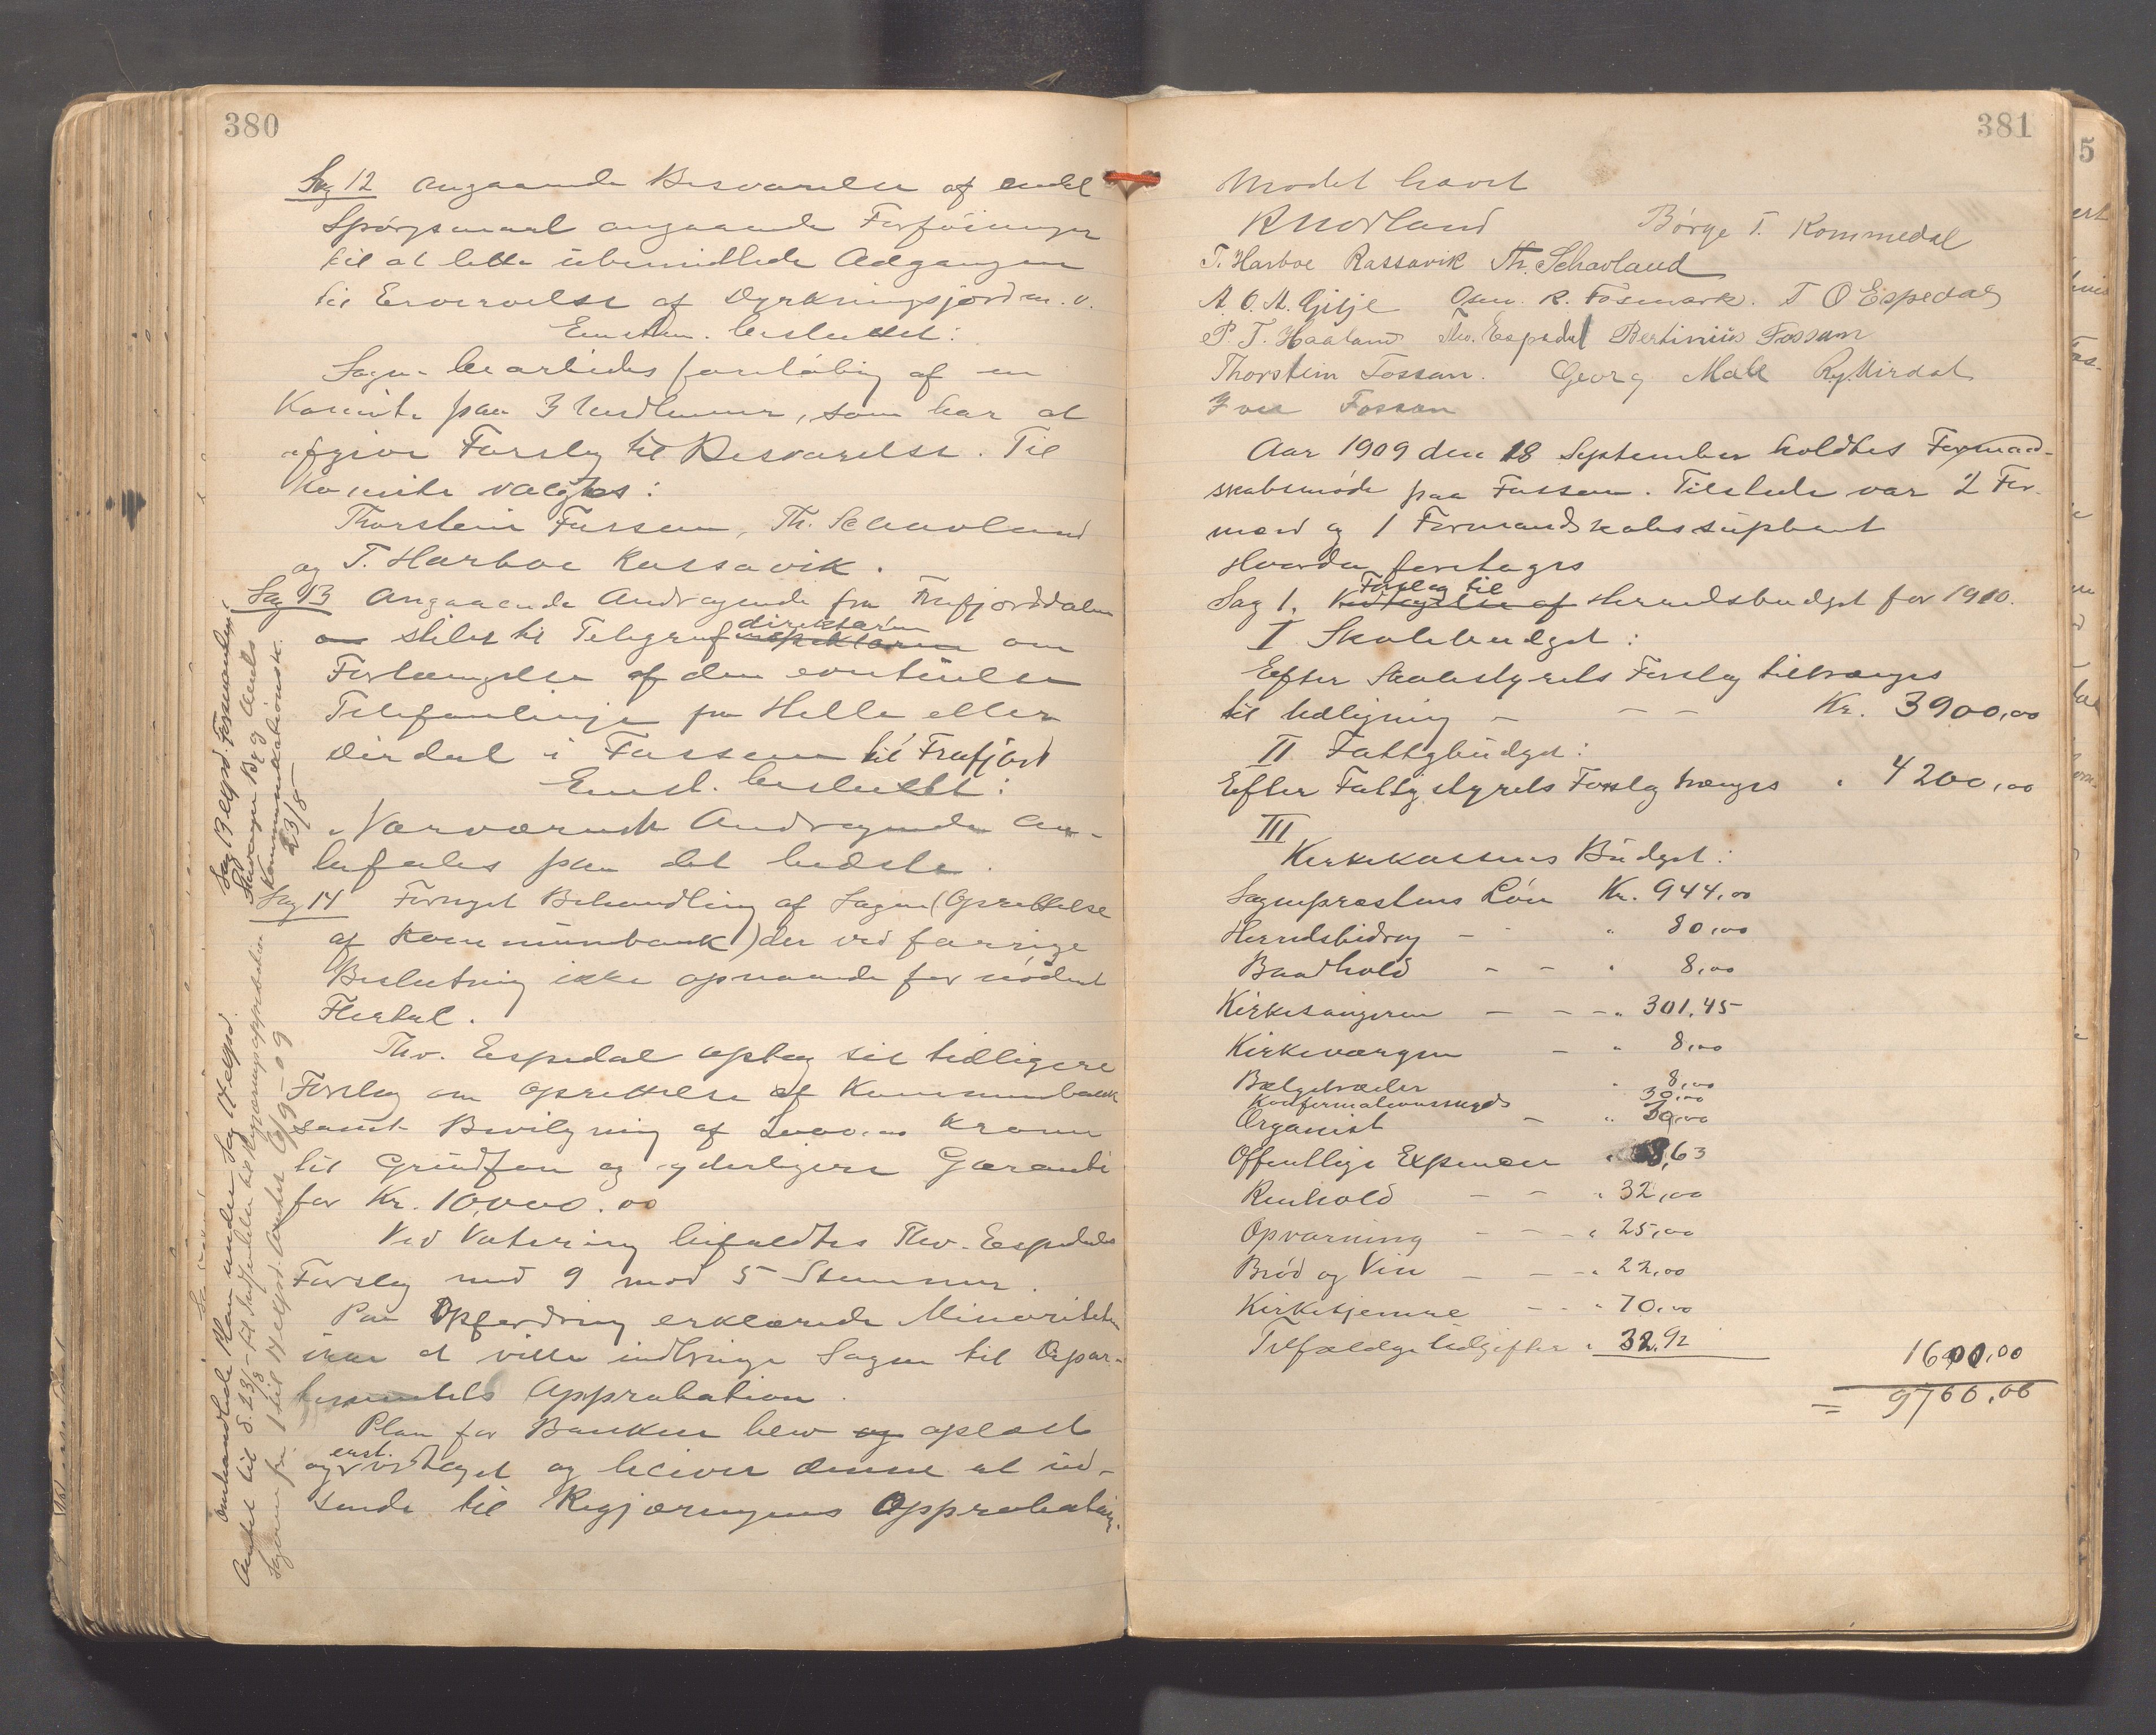 380
Sag 12 angaaende Besvarelse af endel
Spørgsmaal angaaende Forføininger
til at lette ubemidlede Adgangen
til Ervervelse af Dyrkningsjord m.v.
Enstem. besluttet:
Sagen bearbeides foreløbig af en
Komite paa 3 Medlemmer, som har at
afgive Forslag til Besvarelse. Til
Komite valgtes:
Thorstein Fossan, Th. Schavland
og T. Harboe Rassavik.
Sag 13 Angaaende Andragende fra Frafjorddalen
stilet til Telegraf direktøren inspektøren om
Forlængelse af den eventuelle
Telefonlinje fra Helle eller
Dirdal i Fossan til Frafjord
Enst. besluttet:
Nærværende Andragende an-
befales paa det bedste.
Sag 14 Fornyet Behandling af Sagen (Oprettelse
af Kommunebank) der ved forrige
Beslutning ikke opnaaede for nødent
Flertal.
Thv. Espedal optog sit tidligere
Forslag om Oprettelse af Kommunebank
samt Bevilgning af 2000.00 Kroner
til Grundfon og yderligere Garanti
for Kr. 10,000.00
Ved Votering bifaldtes Thv. Espedals
Forslag med 9 mod 5 Stemmer.
Paa Opfordring erklærede Minoriteten
ikke at ville indbringe Sagen til Depar-
tementets Approbation.
Plan for Banken blev og oplæst
og enst. vedtaget og bliver denne at ind-
sende til Regjæringens Approbation.
Sag 13 expd. Formanden i
Stavanger By og Amts
Kommunikationsk.
23/8
omhandlede Plan under Sag 14 expd.
Amtet til d. 23/8
Sagerne fra 1 til 14 expd. Amtet 6/9-09
381
Mødet hævet
R Nodland Børge T. Kommedal
T. Harboe Rassavik Th. Schavland
A. O. A. Gilje Osm. R. Fosmark. T O Espedal
P. T. Haaland Thv. Espedal Bertinius Fossan
Thorstein Fossan. Georg Mæle Rg. Dirdal
Iver Fossan
Aar 1909 den 18 September holdtes Formand-
skabsmøde paa Fossan. Tilstede var 2 For-
mænd og 1 Formandskabssuplent
Hvorda foretoges
Sag 1. Forslag til Vedtagelse af Herredsbudget for 1910.
I Skolebudget:
Efter Skolestyrets Forslag tiltrænges
til Udligning — — — Kr. 3900,00
II Fattigbudget:
Efter Fattigstyrets Forslag trænges " 4200,00
III
Kirkekassens Budget:
Sognepræstens Løn Kr. 944,00
Herredsbidrag — - " 80,00
Baadhold - - " 8,00
Kirkesangeren — — — " 301,45
Kirkeværgen — " 8,00
Bælgetræder " 8,00
Konfirmationssogds 30,00
Organist — " 30,00
Offentlige Expencer " 8,63
Renhold — — " 32,00
Opvarming — — — " 25,00
Brød og Vin — — — " 22,00
Kirketjenere — — " 70,00
Tilfældige Udgifter " 32.92
1600,00
= 9700,00